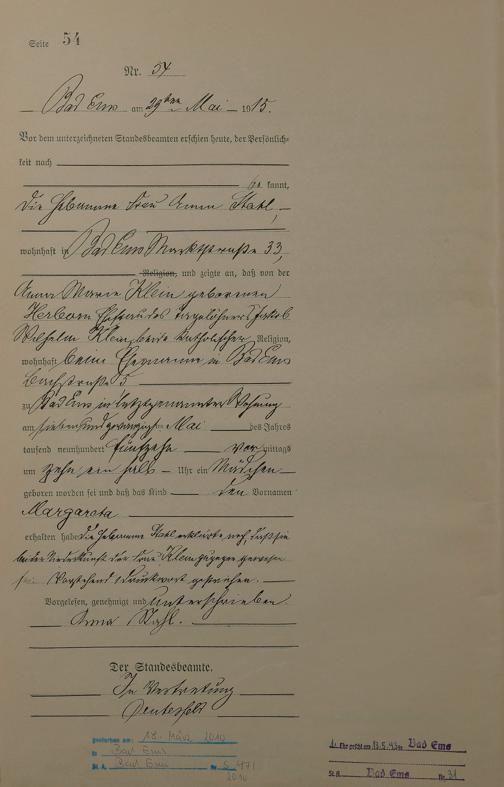 Seite 54
Nr. 54
Bad Ems am 29ten Mai 1915.
Vor dem unterzeichneten Standesbeamten erschien heute, der Persönlich-
keit nach
be kannt,
die Hebamme Frau Anna Stahl,
wohnhaft in Bad Ems Marktstraße 33,
Religion, und zeigte an, daß von der
Anna Maria Klein geborenen
Herborn Ehefrau des Tagelöhners Jakob
Wilhelm Klein, beide katholischer Religion,
wohnhaft beim Ehemanne in Bad Ems
Bachstraße 5
zu Bad Ems in letztgenannter Wohnung
am siebenundzwanzigsten Mai des Jahres
tausend neunhundert fünfzehn Vor mittags
um zehn ein halb Uhr ein Mädchen
geboren worden sei und daß das Kind den Vornamen
Margareta
erhalten habe. Die Hebamme Stahl erklärte noch, daß sie
bei der Niederkunft der Frau Klein zugegen gewesen
sei. Vorstehend 1 Druckwort gestrichen.
Vorgelesen, genehmigt und unterschrieben.
Anna Stahl.
Der Standesbeamte.
In Vertretung
gestorben am: 18. März 2010
in Bad Ems
St. A. Bad Ems Nr.
2010
1. Ehe geschl. am 13.5.43 in Bad Ems
St. A. Bad Ems Nr. 31